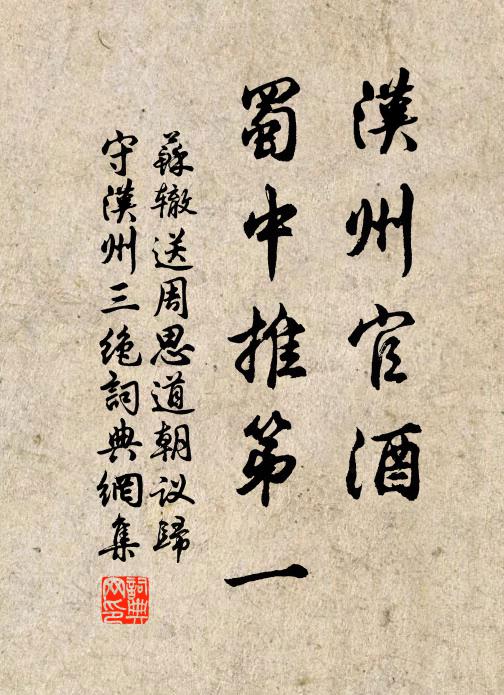 漢州官酒
蜀中推第一
蘇轍送周思道朝议歸
守漢州三絶詞典網集
詞典
网印